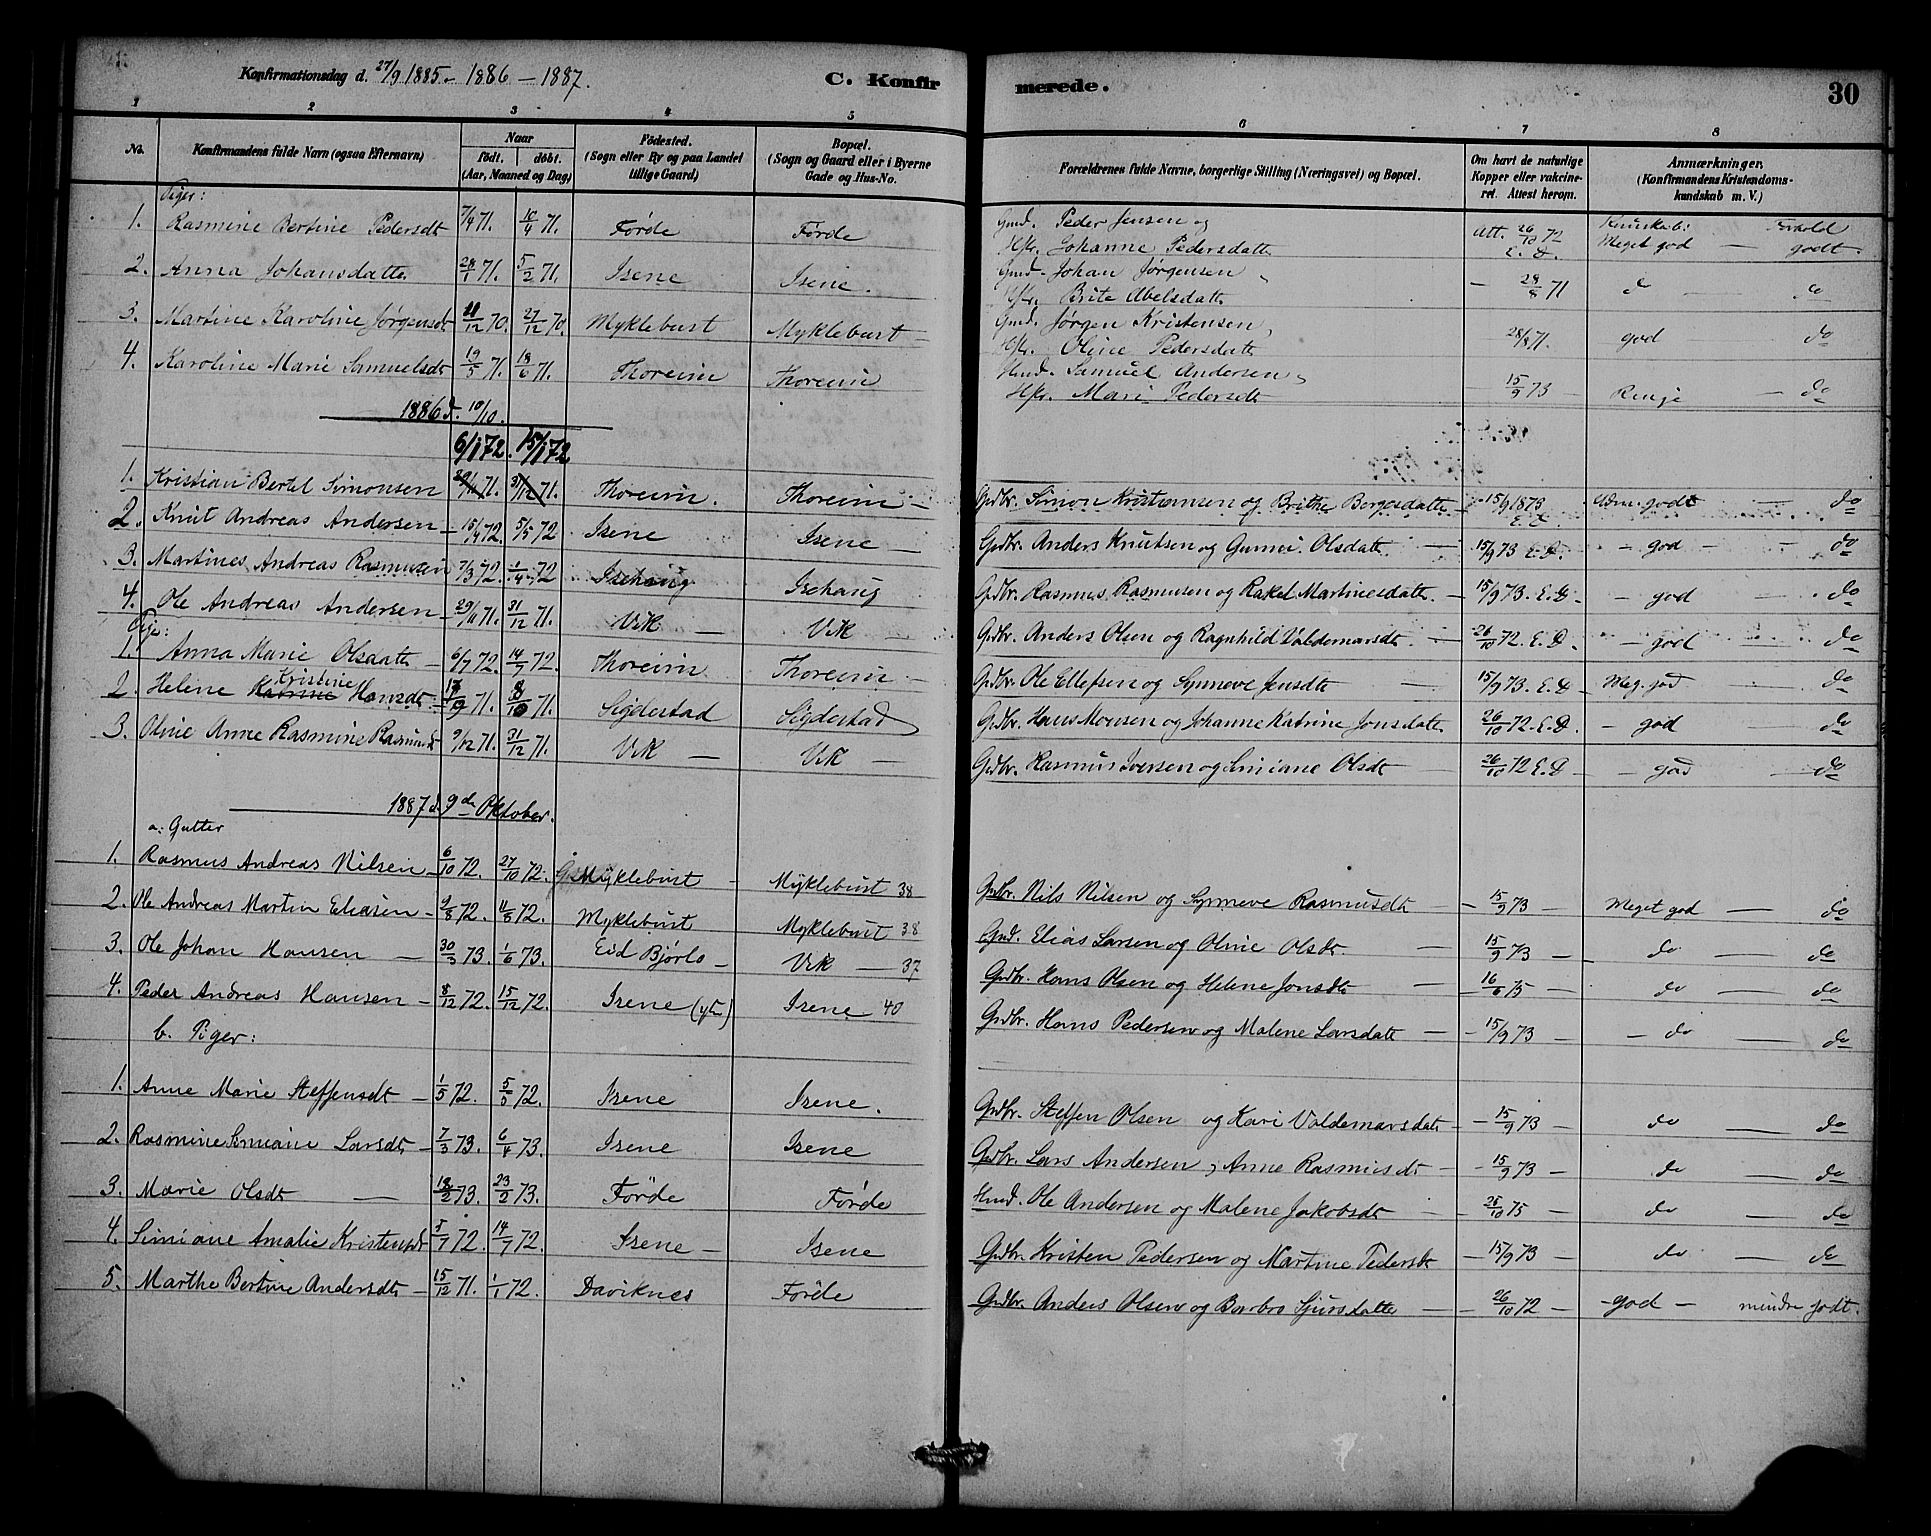 Konfirmationsdag d. 27/9 1885 - 1886 - 1887.
C. Konfir
merede.
30
1 2 3 4 5 6 7 8
No.
Konfirmandens fulde Navn (ogsaa Efternavn)
Naar
født. døbt.
(Aar, Maaned og Dag)
Fødested.
(Sogn eller By og paa Landet
tillige Gaard)
Bopæl.
(Sogn og Gaard eller i Byerne
Gade og Hus-No.
Forældrenes fulde Navne, borgerlige Stilling (Næringsvei) og Bopæl.
Om havt de naturlige
Kopper eller vakcine-
ret. Attest herom.
Anmærkninger,
(Konfirmandens Kristendoms-
kundskab m. V.)
Piger:
1. Rasmine Bertine Pedersdt 7/4 71. 10/4 71. Førde Førde Gmd. Peder Jensen og Hfr. Johanne Pedersdatt Att. 26/10 72 E. D. Kundskab: Meget god — Forhold godt.
2. Anna Johansdatte 28/1 71. 5/2 71. Isene Isene. Gmd. Johan Jørgensen Hfr. Brite Abelsdatt - 28/8 71 do — do
3. Martine Karoline Jørgensdt 11/12 70. 27/12 70. Myklebust Myklebust Gmd. Jørgen Kristensen Hfr. Oline Pedersdatt 28/8 71. god do
4. Karoline Marie Samuelsdt 19/5 71. 18/6 71. Thoreim Thoreim Hmd. Samuel Andersen Hfr. Mari Pedersdt 15/9 73 Ringe — do
1886 d. 10/10.
6/1 72. 15/1 72.
1. Kristian Bertel Simonsen 29/11 71. 31/12 71. Thoreim. Thoreim Grdbr. Simon Kristiansen og Brithe Borgesdatte 15/9 1873 E. D. godt — do
2. Knut Andreas Andersen 15/4 72. 5/5 72 Isene Isene Grdbr. Anders Knutsen og Gunni. Olsdatt. 15/9 73 E. D. - god - do
3. Martines Andreas Rasmusen 7/3 72. 1/4 72 Isehaug Isehaug Grdbr. Rasmus Rasmusen og Rakel Martinesdatt. 15/9 73. E. D. - god - do
4. Ole Andreas Andersen 29/11 71. 31/12 71. Vik Vik Grdbr. Anders Olsen og Ragnhild Valdemarsdt. 26/10 72. E. D. - god do
Piger:
1. Anna Marie Olsdatt 6/7 72. 14/7 72. Thoreim Thoreim Grdbr. Ole Ellefsen og Synneve Jensdt 15/9 73. E. D Meg. god do
2. Helene Katrine Kristine Hansdt. 17/9 71. 8/10 71. Sigdestad Sigdestad Grdbr. Hans Monsen og Johanne Katrine Jonsdatt 26/10 72. E. D. - god do
3. Oline Anne Rasmine Rasmusdt 9/12 71. 31/12 71. Vik Vik Grdbr. Rasmus Iversen og Simiane Olsdt 26/10 72 E. D - god do
1887 d. 9de Oktober.
a: Gutter
1. Rasmus Andreas Nilsen 6/10 72. 27/10 72. Myklebust Myklebust 38 Grdbr. Nils Nilsen og Synneve Rasmusdt 15/9 73 Meget god do
2. Ole Andreas Martin Eliasen 9/8 72. 11/8 72. Myklebust Myklebust 38 Gmd. Elias Larsen og Oline Olsdt. 15/9 73 do do
3. Ole Johan Hansen 30/3 73. 1/6 73. Eid Bjørlo Vik 37 Grdbr. Hans Olsen og Helene Jonsdt 16/6 75 do do
4. Peder Andreas Hansen 8/12 72. 15/12 72. Isene (ytr) Isene 40 Grdbr. Hans Pedersen og Malene Larsdatt 15/9 73 - do do
b. Piger:
1. Anne Marie Steffensdt 1/5 72. 5/5 72. Isene Isene. Grdbr. Steffen Olsen og Kari Valdemarsdatt 15/9 73 do do
2. Rasmine Simiane Larsdt 7/3 73. 6/4 73. Isene Isene Grdbr. Lars Andersen, Anne Rasmusdt 15/9 73 do do
3. Marie Olsdt 18/2 73. 23/2 73. Førde Førde Hmd. Ole Andersen og Malene Jakobsdt 25/10 75 do do
4. Simiane Amalie Kristensdt 5/7 72. 14/7 72. Isene Isene Grdbr. Kristen Pedersen og Martine Pedersdt 15/9 73 do do
5. Marthe Bertine Andersdt 15/12 71. 1/1 72. Daviknes Førde Grdbr. Anders Olsen og Barbro Sjursdatte 26/10 72 - god - mindre godt.